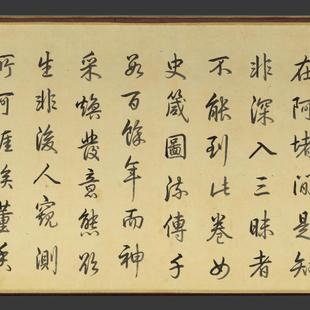 在阿堵間是知
非深入三昧者
不能到此卷女
史箴圖流傳千
數百餘年而神
采煥發意態欲
生非後人窺測
所可涯涘董香